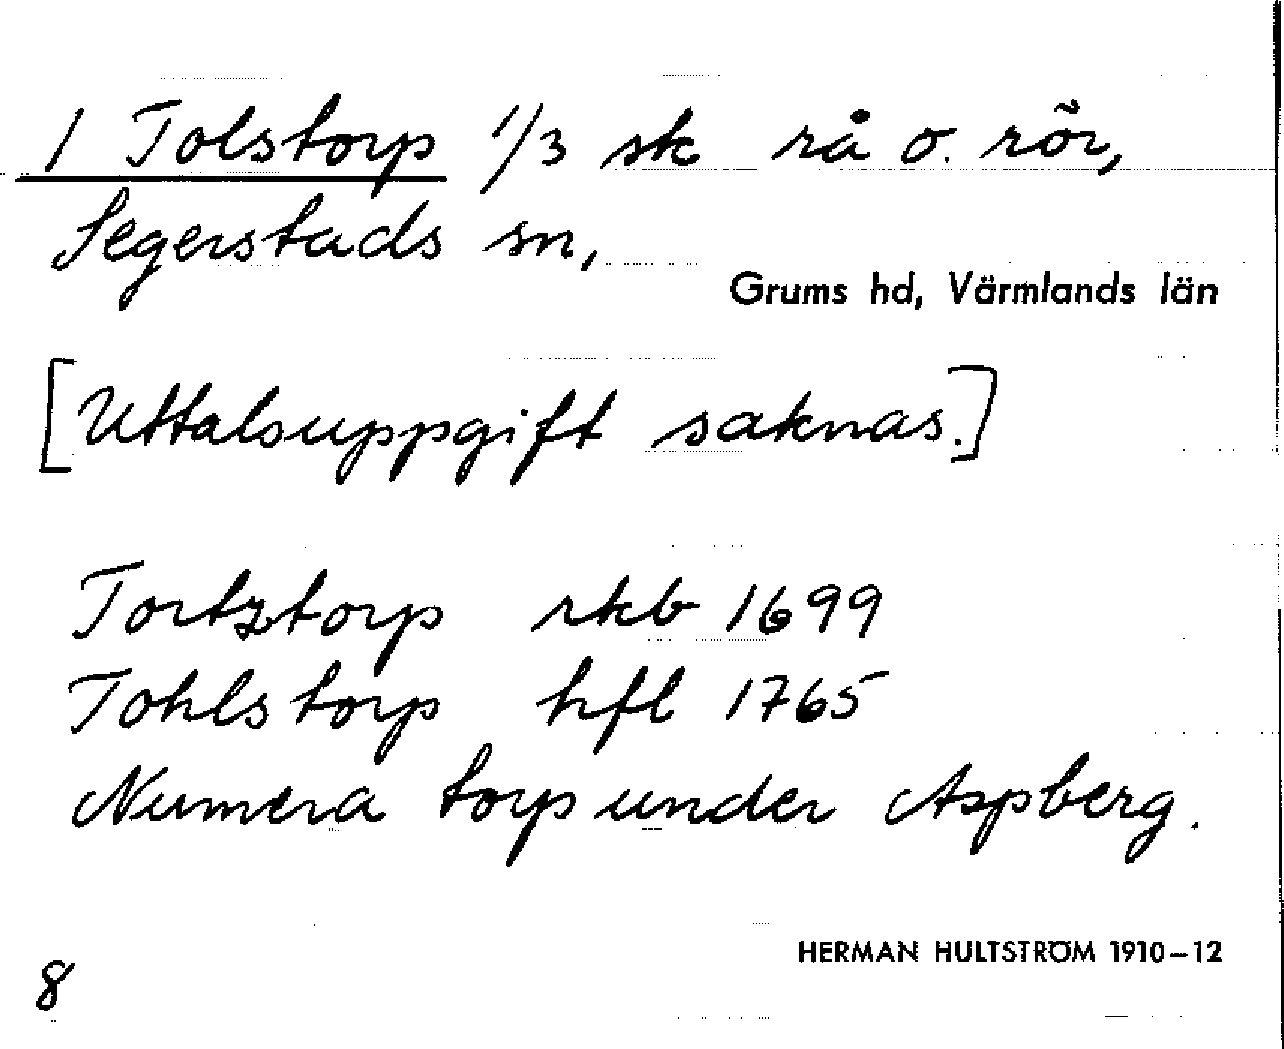 1 Tolstorp 1/3 sk rå o. rör,
Segerstads sn,
Grums hd, Värmlands län
[Uttalsuppgift saknas.]
Tortztorp rkb 1699
Tohlstorp hfl 1765
Numera torp under Aspberg.
HERMAN HULTSTRÖM 1910–12
8